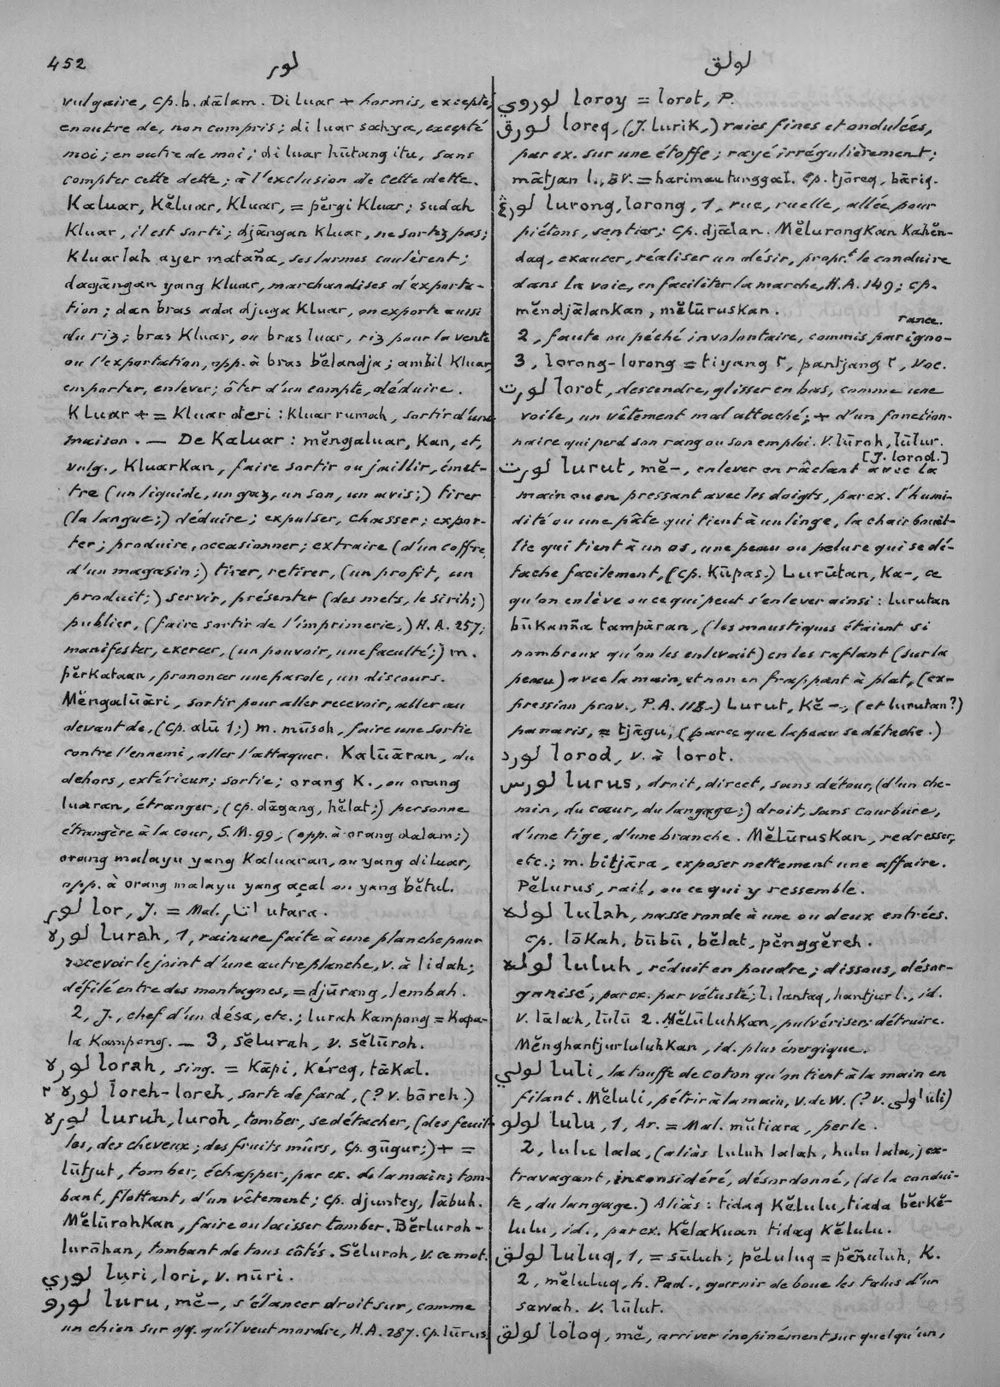 452
لور
لولق
vulgaire, cp. b. dālam. Di luar + hormis, excepté,
en outre de, non compris; di luar sahya, excepté
moi; en outre de moi; di luar hūtang itu, sans
compter cette dette; à l'exclusion de cette dette.
Kaluar, Kĕluar, Kluar, = pĕrgi Kluar; sudah
Kluar, il est sorti; djāngan Kluar, ne sortez pas;
Kluarlah ayer mataña, ses larmes coulèrent;
dagāngan yang Kluar, marchandises d'exporta-
tion; dan bras ada djuga Kluar, on exporte aussi
du riz; bras Kluar, ou bras luar, riz pour la vente
ou l'exportation, opp. à bras bĕlandja; ambil Kluar,
emporter, enlever; ôter d'un compte, déduire.
Kluar + = Kluar deri: Kluar rumah, sortir d'une
maison. — De Kaluar: mĕngaluar, Kan, et,
vulg., Kluarkan, faire sortir ou jaillir, émet-
tre (un liquide, un gaz, un son, un avis;) tirer
(la langue;) déduire; expulser, chasser; expor-
ter; produire, occasionner; extraire (d'un coffre,
d'un magasin;) tirer, retirer, (un profit, un
produit;) servir, présenter (des mets, le sirih;)
publier, (faire sortir de l'imprimerie,) H.A. 257;
manifester, exercer, (un pouvoir, une faculté;) m.
pĕrkataan, prononcer une parole, un discours.
Mĕngalūāri, sortir pour aller recevoir, aller au
devant de, (cp. alū 1;) m. mūsoh, faire une sortie
contre l'ennemi, aller l'attaquer. Kalūāran, du
dehors, extérieur; sortie; orang K., ou orang
luaran, étranger, (cp. dāgang, hĕlat;) personne
étrangère à la cour, S.M. 99, (opp. à orang dalam;)
orang malayu yang Kaluaran, ou yang di luar,
opp. à orang malayu yang açal ou yang bĕtul.
لور lor, J. = Mal. اتار utara.
لوره lurah, 1, rainure faite à une planche pour
recevoir le joint d'une autre planche, v. à lidah;
défilé entre des montagnes, = djūrang, lembah.
2, J., chef d'un désa, etc.; lurah Kampong = Kapa-
la Kampong. — 3, sĕlurah, v. sĕlūroh.
لوره lorah, sing. = Kāpi, Kéreq, tàkal.
لوره ٢ loreh-loreh, sorte de fard, (? v. bāreh.)
لوره luruh, luroh, tomber, se détacher, (des feuil-
les, des cheveux; des fruits mûrs, cp. gūgur;) + =
lūtjut, tomber, échapper, par ex. de la main; tom-
bant, flottant, d'un vêtement; cp. djuntey, lābuh.
MĕlūrohKan, faire ou laisser tomber. Bĕrluroh-
lurōhan, tombant de tous côtés. Sĕluroh, v. ce mot.
لوري luri, lori, v. nūri.
لورو luru, mĕ—, s'élancer droit sur, comme
un chien sur qq. qu'il veut mordre, H.A. 287. Cp. lūrus.
لوروي loroy = lorot, P.
لورق loreq, (J. lurik,) raies fines et ondulées,
par ex. sur une étoffe; rayé irrégulièrement;
mātjan l., BV. = harimau tunggal. Cp. tjōreq, bāriq.
لورڠ lurong, lorong, 1, rue, ruelle, allée pour
piétons, sentier; cp. djālan. MĕlurongKan Kahĕn-
daq, exaucer, réaliser un désir, propr.t le conduire
dans la voie, en faciliter la marche, H.A. 149; cp.
mĕndjālanKan, mĕlūrusKan.
rance.
2, faute ou péché involontaire, commis par igno-
3, lorong-lorong = tiyang ٢, pantjang ٢, Voc.
لورت lorot, descendre, glisser en bas, comme une
voile, un vêtement mal attaché; + d'un fonction-
naire qui perd son rang ou son emploi. V. lūroh, lūlur.
[J. lorod.]
لورت lurut, mĕ—, enlever en râclant avec la
main ou en pressant avec les doigts, par ex. l'humi-
dité ou une pâte qui tient à un linge, la chair bouil-
lie qui tient à un os, une peau ou pelure qui se dé-
tache facilement, (cp. Kūpas.) Lurūtan, Ka—, ce
qu'on enlève ou ce qui peut s'enlever ainsi: lurutan
būkanña tampāran, (les moustiques étaient si
nombreux qu'on les enlevait) en les raflant (sur la
peau) avec la main, et non en frappant à plat, (ex-
pression prov., P.A. 118.) Lurut, Kĕ—, (et lurutan?)
panaris, = tjāgu, (parce que la peau se détache.)
لورد lorod, v. à lorot.
لورس lurus, droit, direct, sans détour, (d'un che-
min, du cœur, du langage;) droit, sans courbure,
d'une tige, d'une branche. MĕlūrusKan, redresser,
etc.; m. bitjāra, exposer nettement une affaire.
Pĕlurus, rail, ou ce qui y ressemble.
لوله lulah, nasse ronde à une ou deux entrées.
cp. lōKah, būbū, bĕlat, pĕnggĕreh.
لوله luluh, réduit en poudre; dissous, désor-
ganisé, par ex. par vétusté; l. lantaq, hantjur l., id.
V. lālah, lūlū 2. MĕlūluhKan, pulvériser; détruire.
MĕnghantjurluluhKan, id. plus énergique.
لولي luli, la touffe de coton qu'on tient à la main en
filant. Mĕluli, pétrir à la main, V. de W. (? v. اولي ūli)
لولو lulu, 1, Ar. = Mal. mūtiara, perle.
2, lulu lala, (aliàs luluh lalah, hulu lala,) ex-
travagant, inconsidéré, désordonné, (de la condui-
te, du langage.) Aliàs: tidaq Kĕlulu, tiada bĕrKĕ-
lulu, id., par ex. KĕlaKuan tidaq Kĕlulu.
لولق luluq, 1, = sūluh; pĕluluq = pĕñuluh, K.
2, mĕluluq, h. Pad., garnir de boue les talus d'un
sawah. V. lūlut.
لولق loloq, mĕ, arriver inopinément sur quelqu'un,